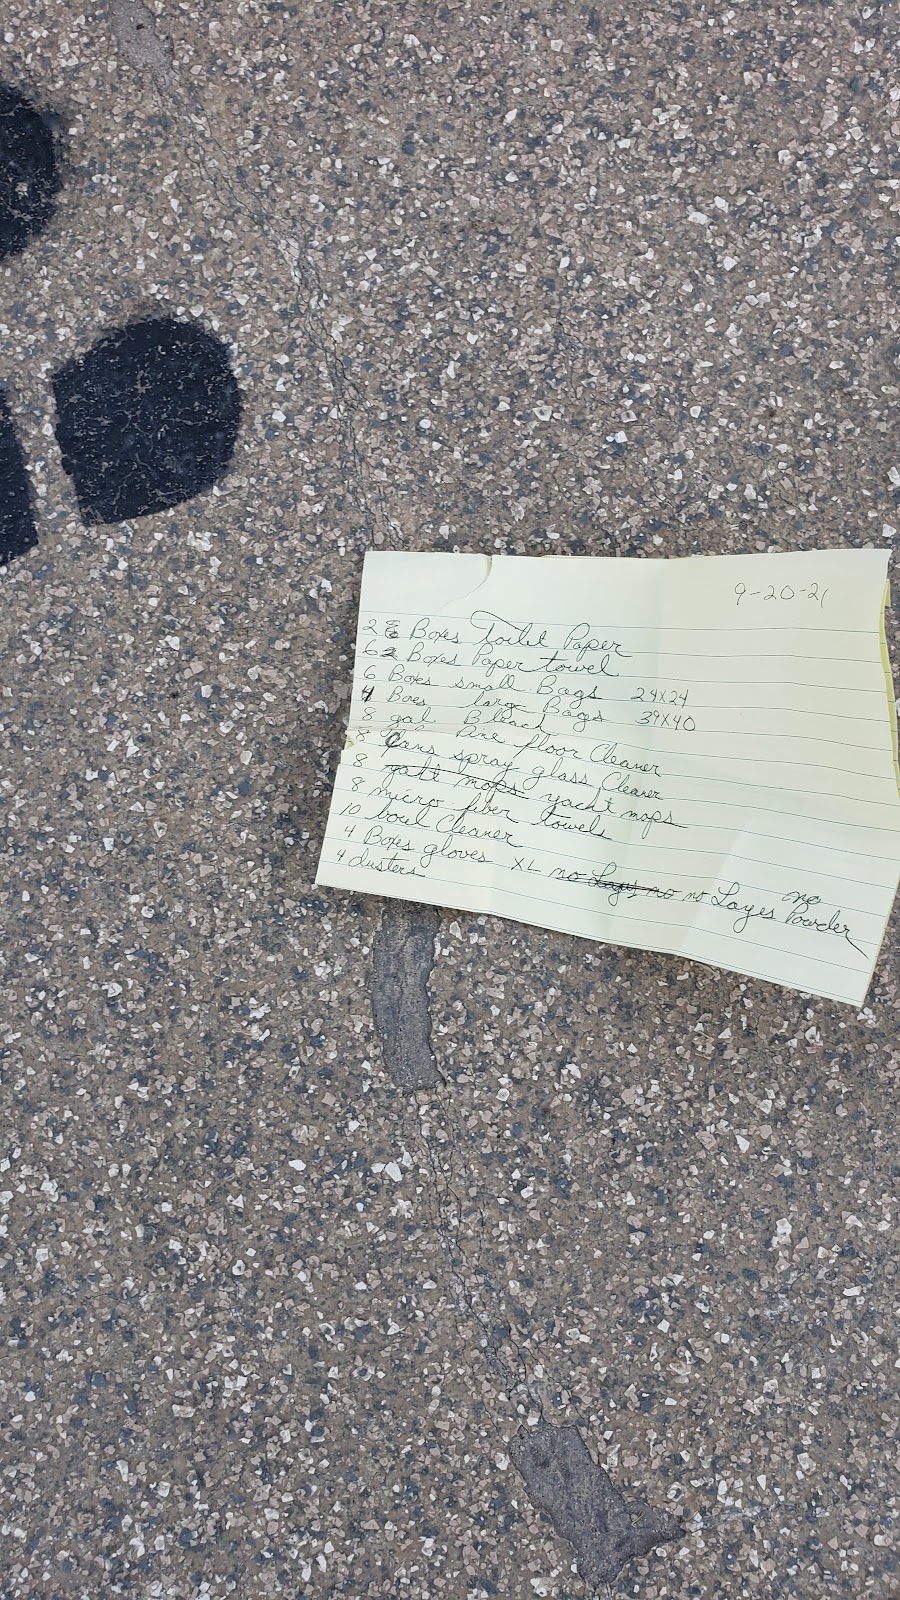 9-20-21
2 Boxes Toilet Paper
6 Boxes Paper towel
6 Boxes small Bags 24x24
4 Boxes large Bags 39x40
8 gal Bleach
8 " Pine floor Cleaner
8 Cans spray glass Cleaner
8 yaht mops yacht mops
8 micro fiber towels
10 bowl Cleaner
4 Boxes gloves XL no no Powder
4 dusters